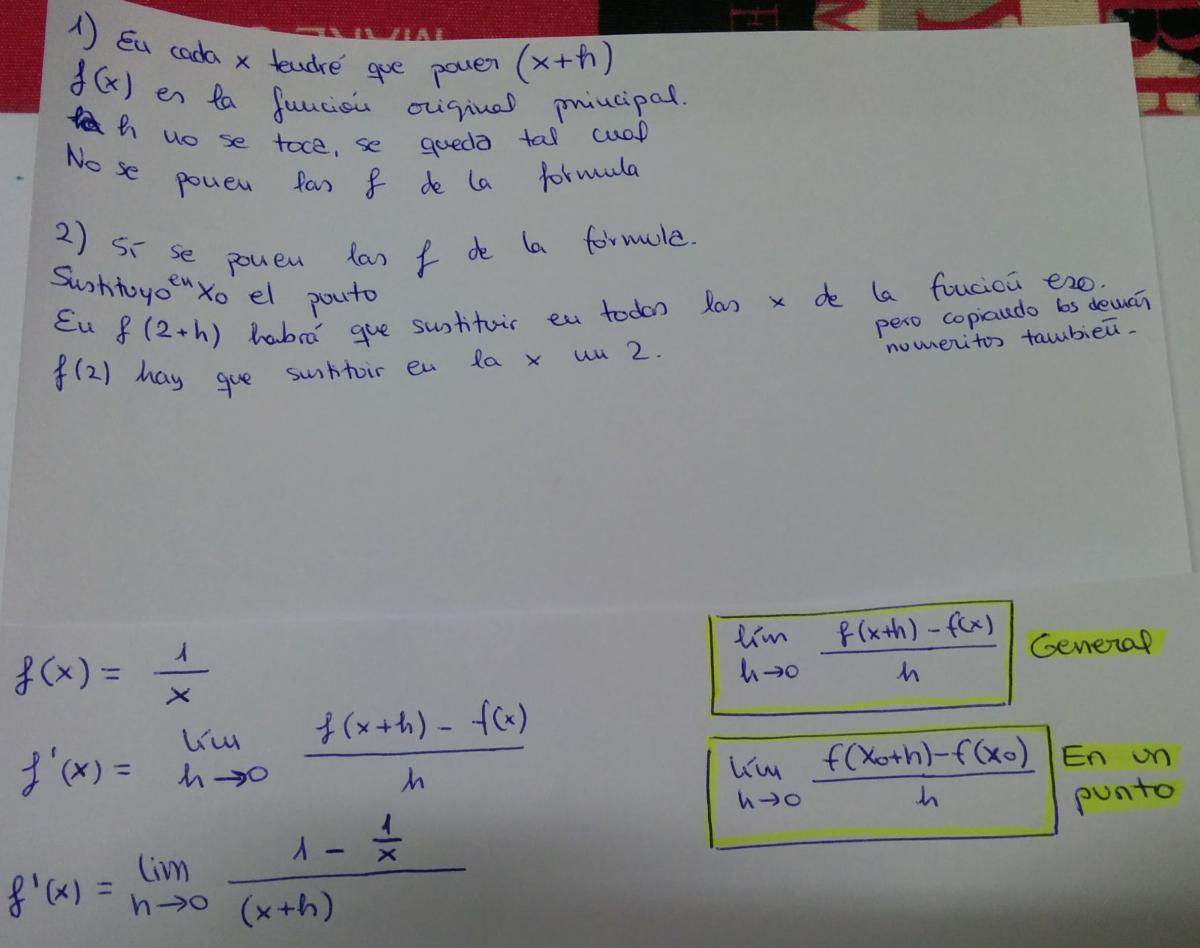 1) En cada x tendré que poner (x+h)
f(x) es la función original principal.
h no se toca, se queda tal cual
No se ponen las f de la fórmula
2) Sí se ponen las f de la fórmula.
Sustituyo en X₀ el punto
En f(2+h) habrá que sustituir en todas las x de la función eso.
pero copiando los demás
numeritos también.
f(2) hay que sustituir en la x un 2.
f(x) = 1/x
f'(x) = lím h→0 (f(x+h) - f(x))/h
f'(x) = lim h→0 (1 - 1/x)/(x+h)
lím h→0 (f(x+h) - f(x))/h General
lím h→0 (f(X₀+h) - f(X₀))/h En un
punto